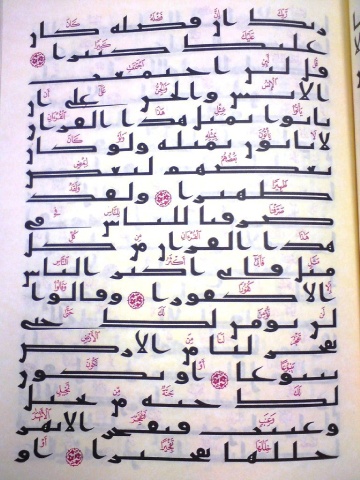 ربك ان فضله كان
عليك كبيرا
قل لئن اجتمعت
الانس والجن على ان
ياتوا بمثل هذا القران
لا ياتون بمثله ولو كان
بعضهم لبعض
ظهيرا ولقد
صرفنا للناس في
هذا القران من كل
مثل فابى اكثر الناس
الا كفورا وقالوا
لن نومن لك حتى
تفجر لنا من الارض
ينبوعا او تكون
لك جنة من نخيل
وعنب فتفجر الانهر
خللها تفجيرا او